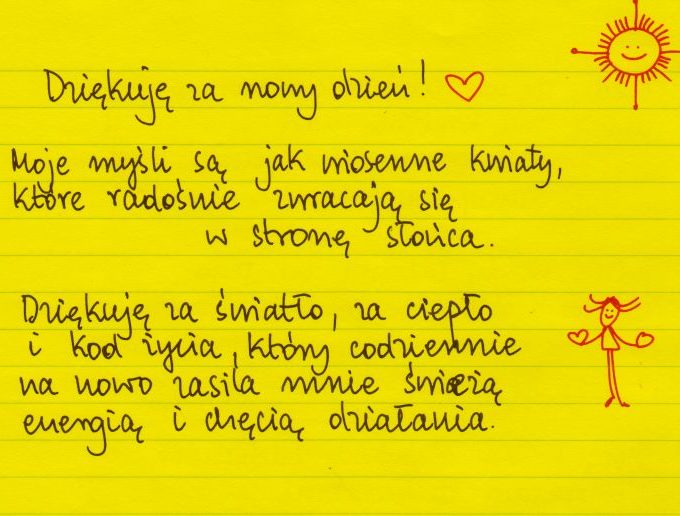 Dziękuję za nowy dzień!
Moje myśli są jak wiosenne kwiaty,
które radośnie zwracają się
w stronę słońca.
Dziękuję za światło, za ciepło
i kod życia, który codziennie
na nowo zasila mnie świeżą
energią i chęcią działania.